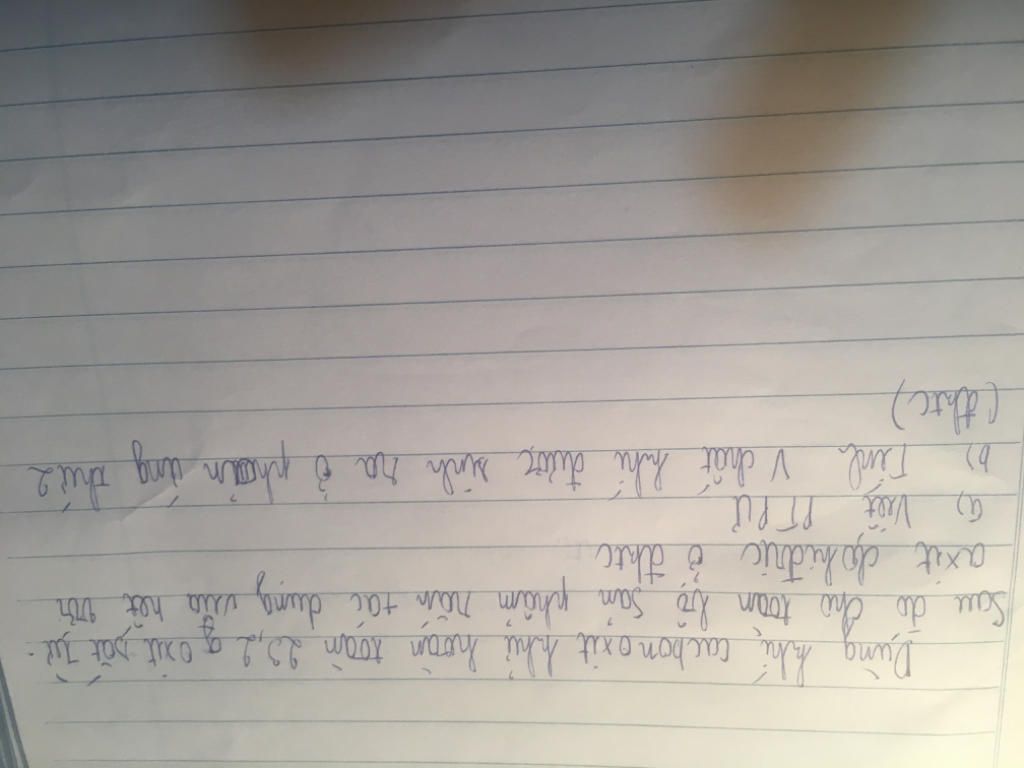 Dùng khí cacbon oxit khử hoàn toàn 23,2 g oxit sắt từ.
Sau đó cho toàn bộ sản phẩm rắn tác dụng vừa hết với
axit clohiđric ở đktc
a) Viết PTPƯ
b) Tính V chất khí được sinh ra ở phản ứng thứ 2
(đktc)